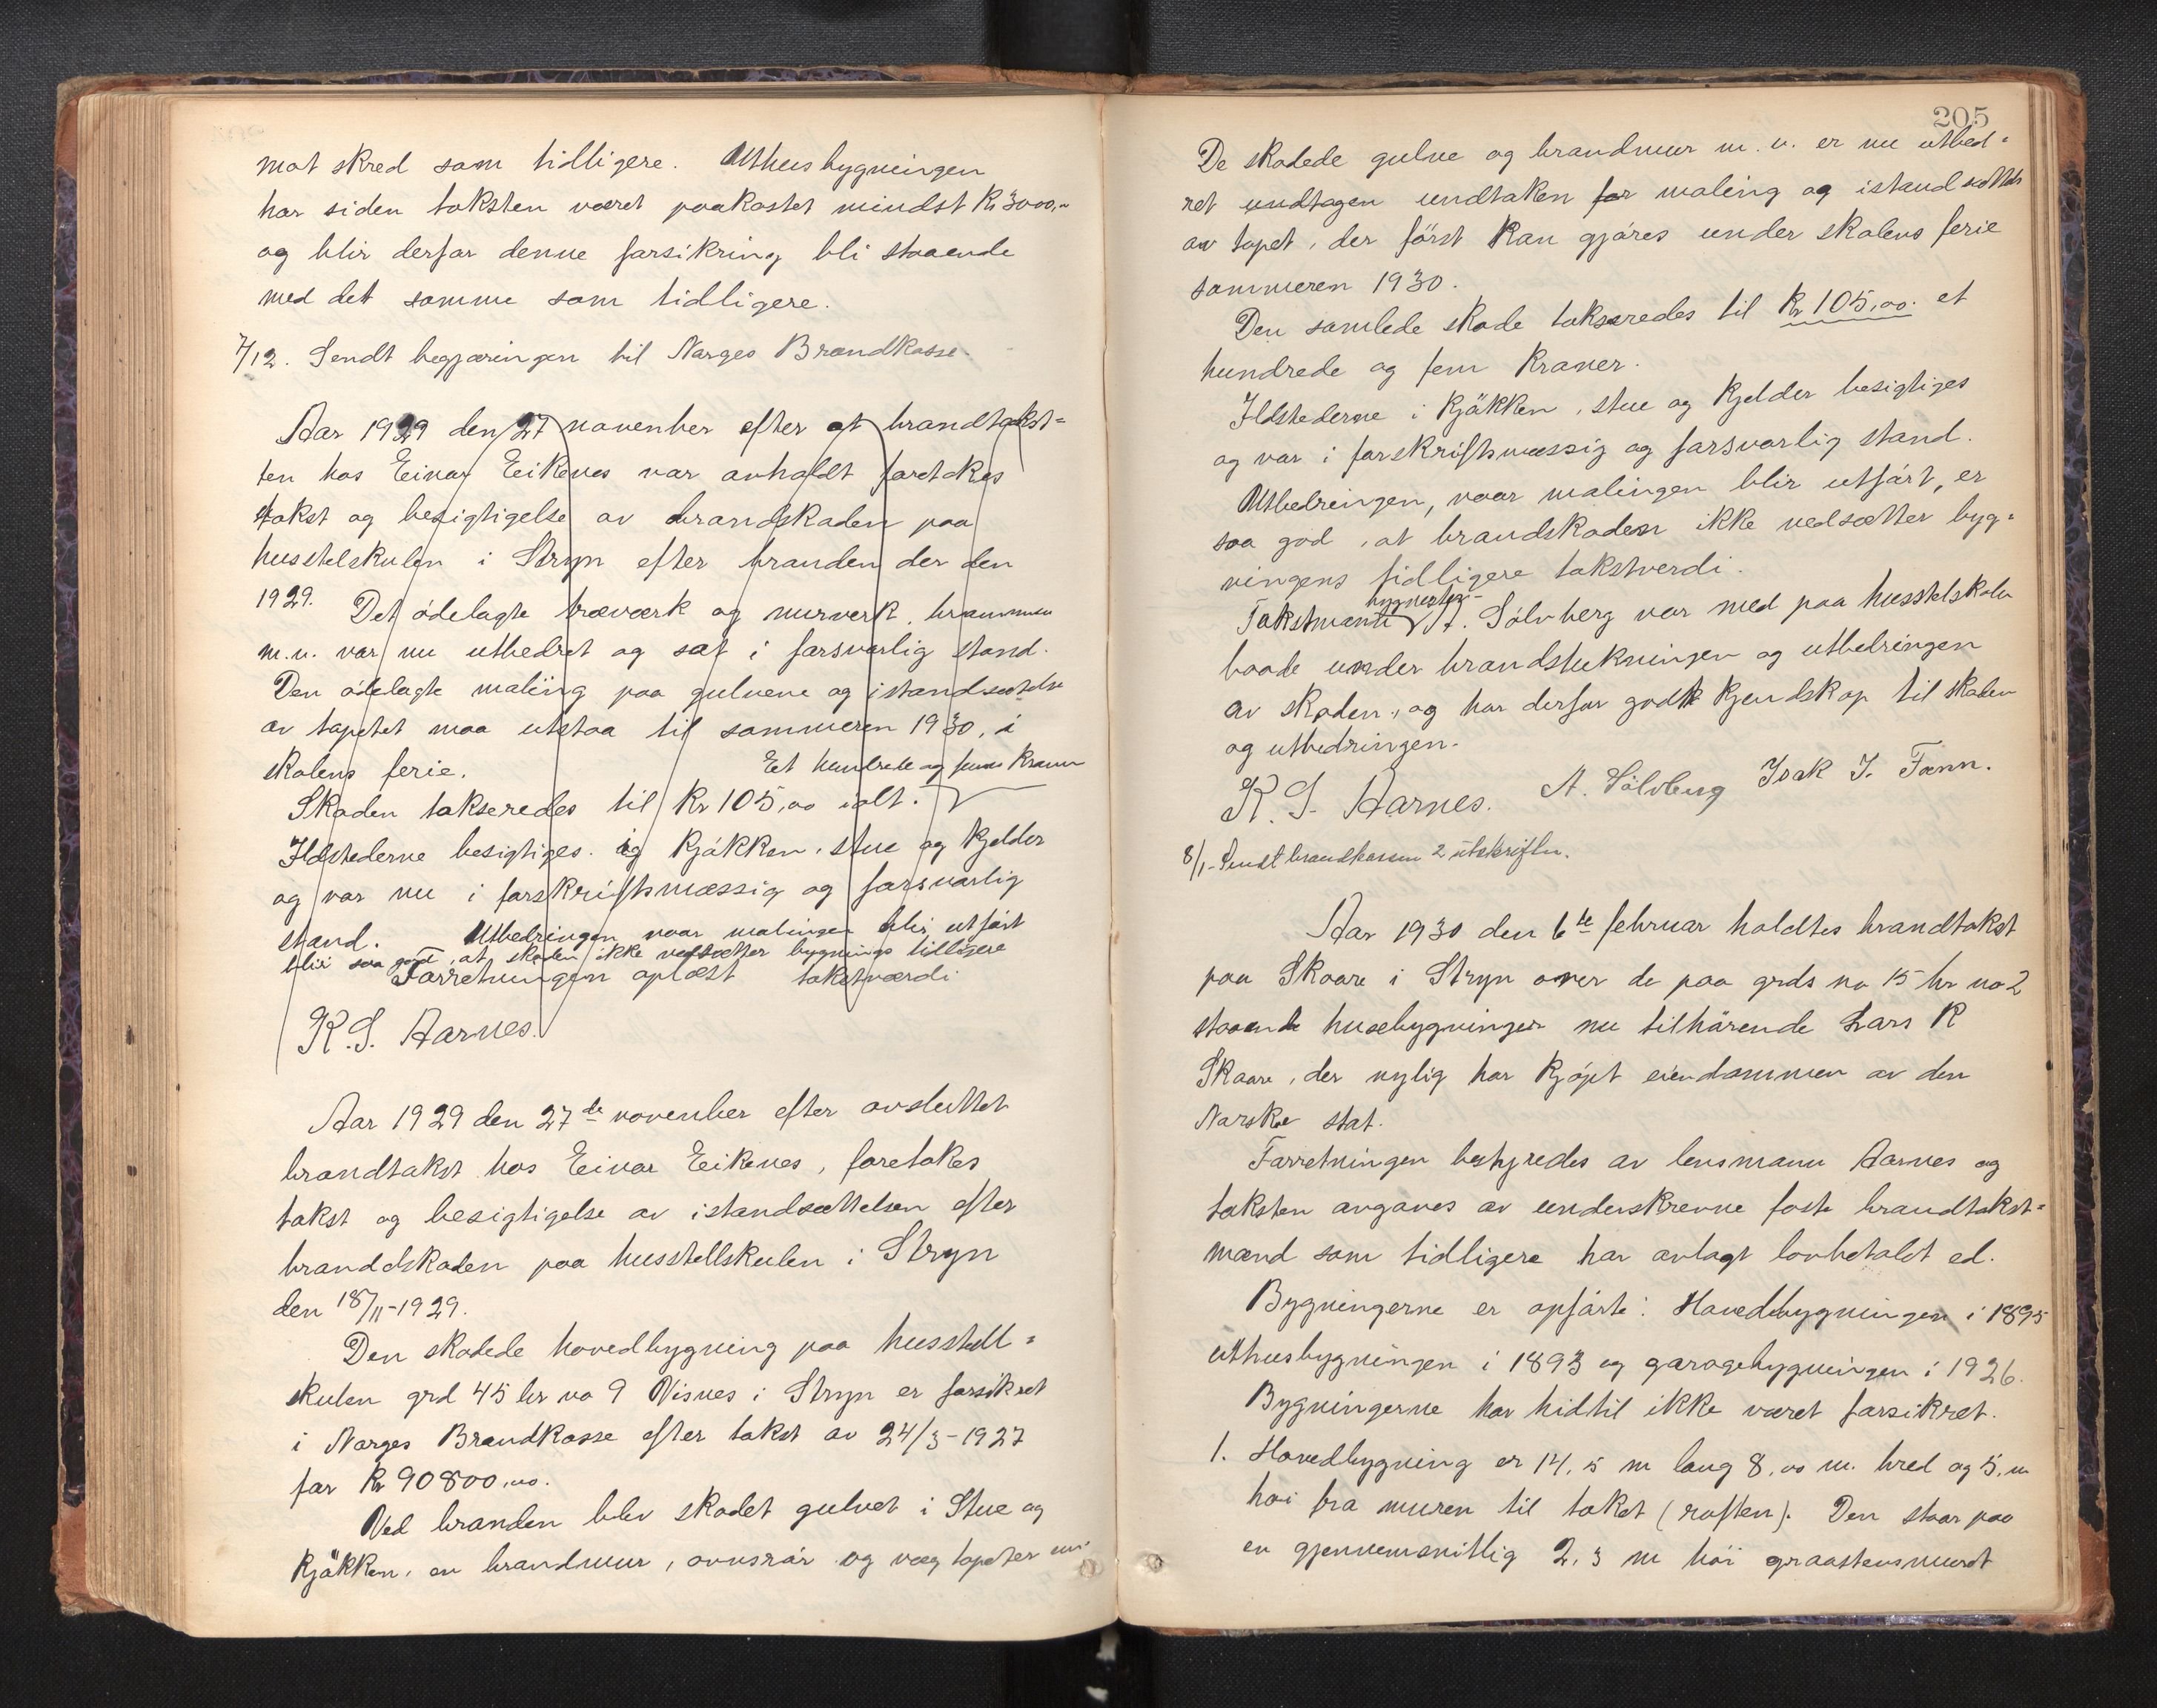 mot skred som tidligere. Uthusbygningen
har siden taksten været paakostet mindst Kr 3000,-
og blir derfor denne forsikring bli staaende
med det samme som tidligere.
7/12. Sendt begjæringen til Norges Brandkasse.
Aar 1929 den 27 november efter at brandtakst=
ten hos Einar Eikenes var avholdt foretokes
takst og besigtigelse av brandskaden paa
husstelskulen i Stryn efter branden der den
1929. Det ödelagte træværk og murverk, brannmur
m.v. var nu utbedret og sat i forsvarlig stand.
Den ödelagte maling paa gulvene og istandsættelse
av tapetet maa utstaa til sommeren 1930, i
skolens ferie. Et hundrede og fem Kroner
Skaden takseredes til Kr 105,oo ialt.
Ildstederne besigtiges. ig Kjökken, stue og Kjelder
og var nu i forskriftsmæssig og forsvarlig
stand. Utbedringen naar malingen blir utfört
blir saa god, at skaden ikke nedsætter bygnings tidligere
Forretningen oplæst takstværdi
K. S. Aarnes.
Aar 1929 den 27de november efter avsluttet
brandtakst hos Einar Eikenes, foretokes
takst og besigtigelse av istandsættelsen efter
branddskaden paa husstellskulen i Stryn
den 18/11-1929.
Den skadede hovedbygning paa husstell=
skulen grd 45 br no 9 Visnes i Stryn er forsikret
i Norges Brandkasse efter takst av 24/3-1927
for Kr 90800,oo.
Ved branden blev skadet gulvet i Stue og
Kjökken, en brandmur, ovnsrör og væg tapeter m.v.
205
De skadede gulve og brandmur m.v. er nu utbed=
ret undtagen undtaken for maling og istandsættelse
av tapet, der först Kan gjöres under skolens ferie
sommeren 1930.
Den samlede skade takseredes til Kr 105,oo. et
hundrede og fem Kroner.
Ildstederne i Kjökken, stue og Kjelder besigtiges
og var i forskriftsmæssig og forsvarlig stand.
Utbedringen, naar malingen blir utfört, er
saa god, at brandskaden ikke nedsætter byg=
ningens tidligere takstverdi.
bygmester
Takstmann A. Sölvberg var med paa husstelskolen
baade under brandslukningen og utbedringen
av skaden, og har derfor godt Kjendskap til skaden
og utbedringen.
K. S. Aarnes. A. Sölvberg Isak I. Tonn.
8/1- Sendt brandkassen 2 utskrifter.
Aar 1930 den 6te februar holdtes brandtakst
paa Skaare i Stryn over de paa grds no 15 br no 2
staaende husebygninger nu tilhörende Lars R
Skaare, der nylig har Kjöpt eiendommen av den
Norske stat.
Forretningen bestyredes av lensmann Aarnes og
taksten avgaves av underskrevne faste brandtakst=
mænd som tidligere har avlagt lovbefalt ed.
Bygningerne er opförte: Hovedbygningen i 1895
uthusbygningen i 1893 og garagebygningen i 1926.
Bygningerne har hidtil ikke været forsikret.
1. Hovedbygning er 14,5 m lang 8,oo m. bred og 5, m
höi fra muren til taket (raften). Den staar paa
en gjennemsnitlig 2,3 m höi graastensmuret